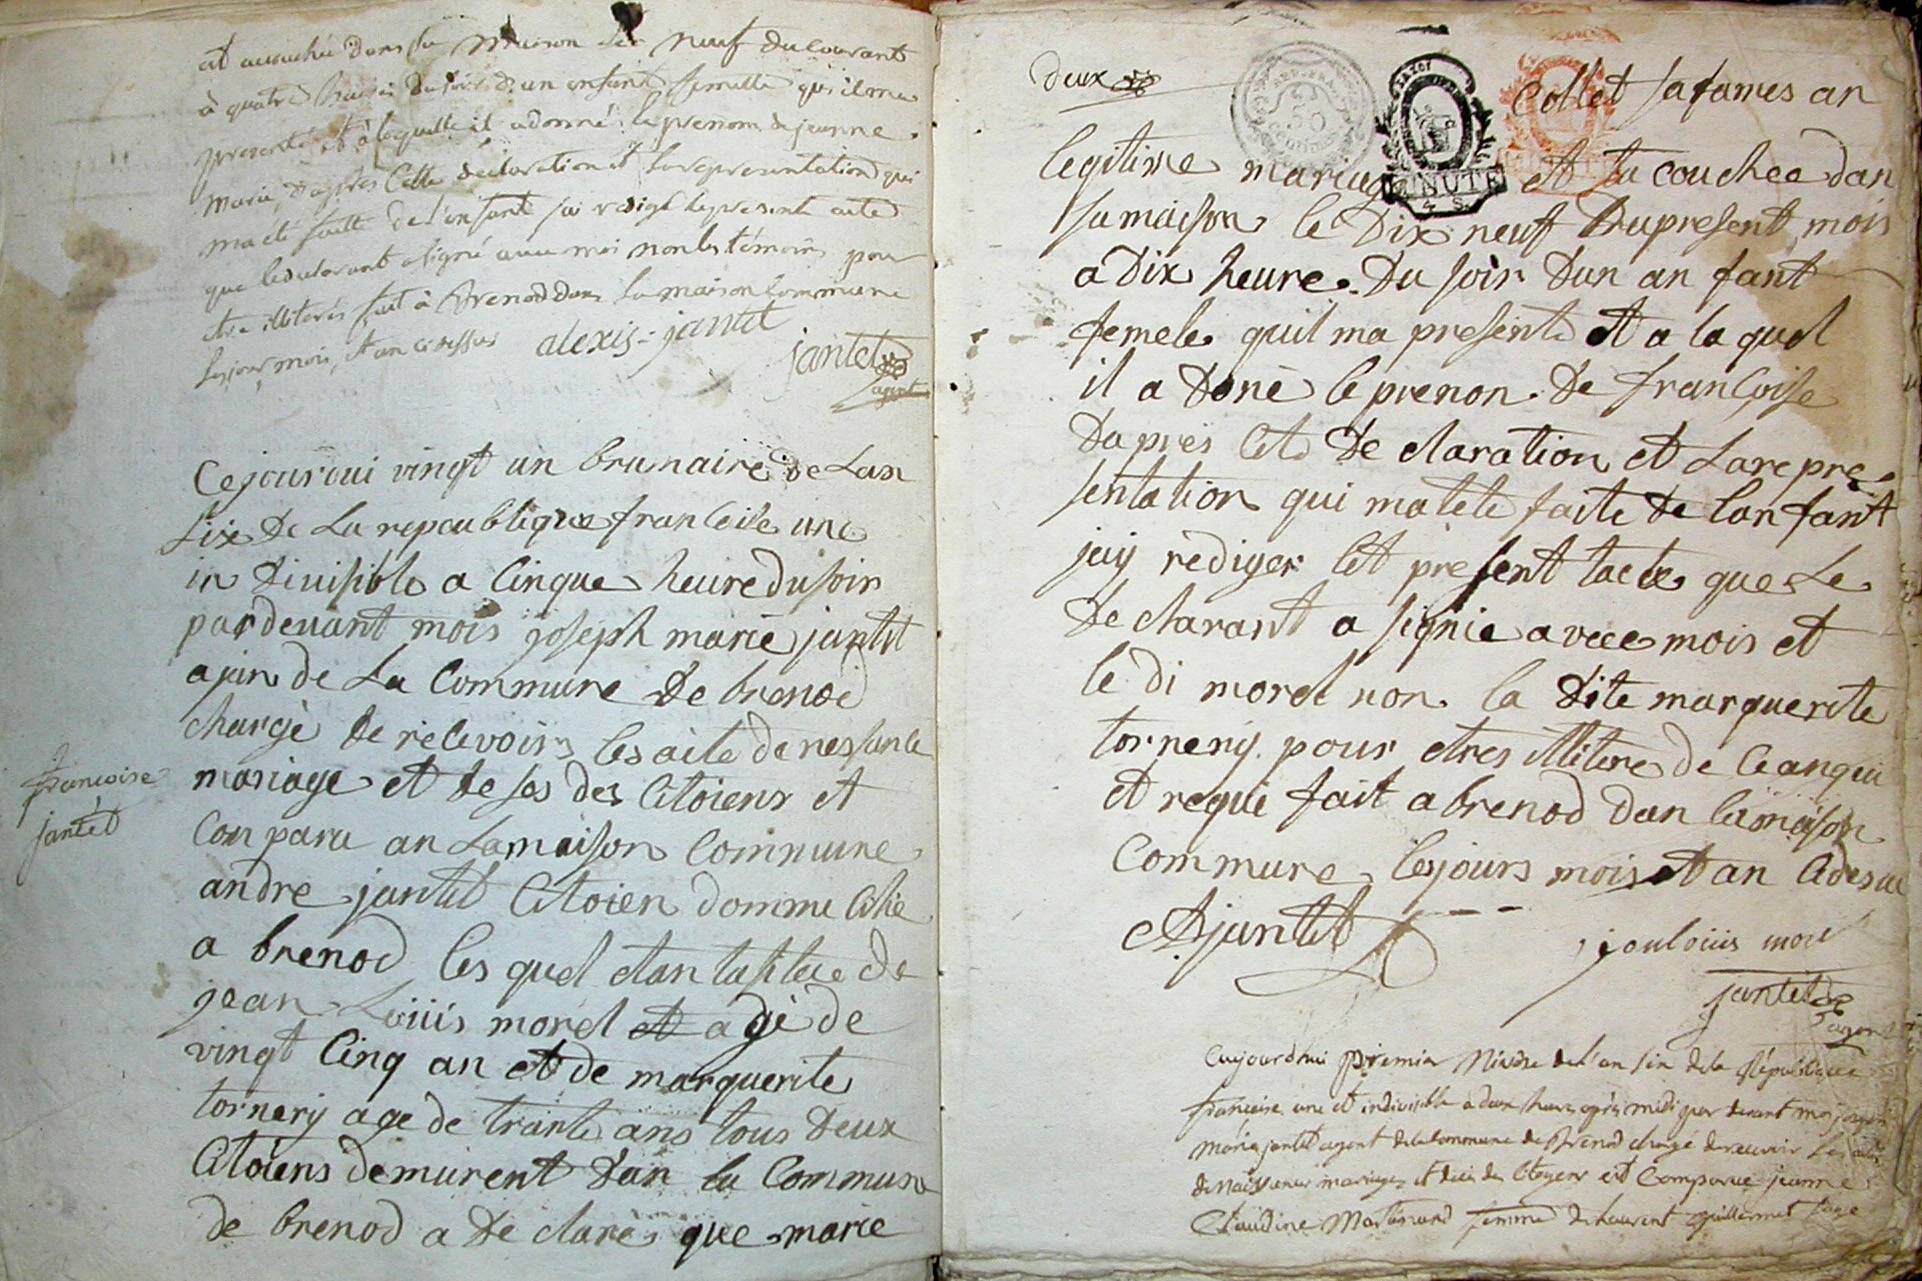 et accouchée dans sa maison le neuf du courant
à quatre heures du soir d'un enfant femelle qu'il m'a
presenté et à laquelle il a donné le prenom de jeanne
marie, d'après cette déclaration et la representation qui
m'a été faitte de l'enfant j'ai rédigé le present acte
que le déclarant a signé avec moi non les témoins pour
etre illiterés fait à Brenod dans la maison commune
les jour, mois et an ci dessus alexis jantet
jantet
agent
Ce jour'oui vingt un brumaire de Lan
six de La repeublique franceise une
in divisible a Cinque heure du soir
pardevant mois joseph marie jantet
ajan de La Commune de brenod
chargé de relevoir les aite de nessance
mariage et de ses des Citoiens et
Con paru an La maison Commune
andre jantet Citoien domme cilié
a brenod les quel etan tasistee de
jean Loiuis morel et a gé de
vingt Cinq an et de marguerite
tornery age de trante ans tous deux
Citoiens demurent dan la Commune
de brenod a de claré que marie
francoise
jantet
deux
MINUTE
Collet sa fames an
legitime mariage et ta couchee dan
sa maison le dix neuf du present mois
a dix heure du soir dun an fant
femele quil ma presente et a la quel
il a doné le prenon de francoise
da pres Cete de claration et La repre
sentation qui ma tete faite de lan fant
jay rediger Cet present tacte que Le
de clarant a signie avece mois et
le di morel non la dite marguerite
tornery pour etres illitere de Ce anqui
et requi fait a brenod dan la maison
Commune les jours mois et an Cidesue
A jantet
jean louiis morel
jantet
agent
Aujourd'hui premier Nivôse de l'an six de la République
francaise une et indivisible à deux heures après midi par devant moi joseph
marie jantet agent de la commune de Brenod chargé de recevoir les actes
de naissances mariages et decès des citoyens est Comparue jeanne
Claudine Martinand femme de laurent guillermet sage